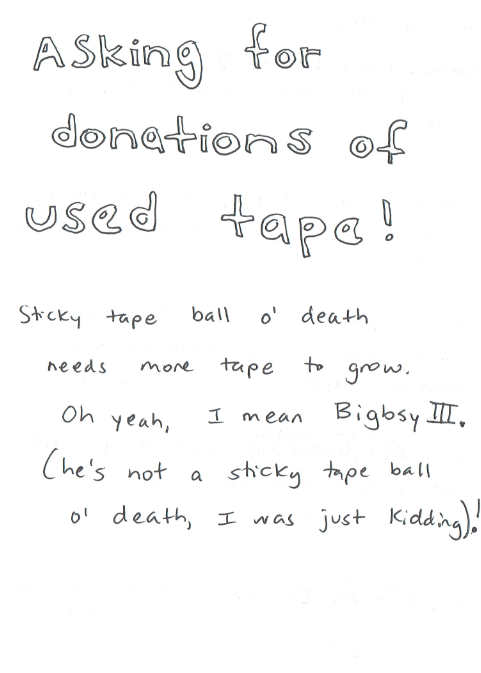 Asking for
donations of
used tape!
Sticky tape ball o' death
needs more tape to grow.
Oh yeah, I mean Bigbsy III.
(he's not a sticky tape ball
o' death, I was just kidding)!